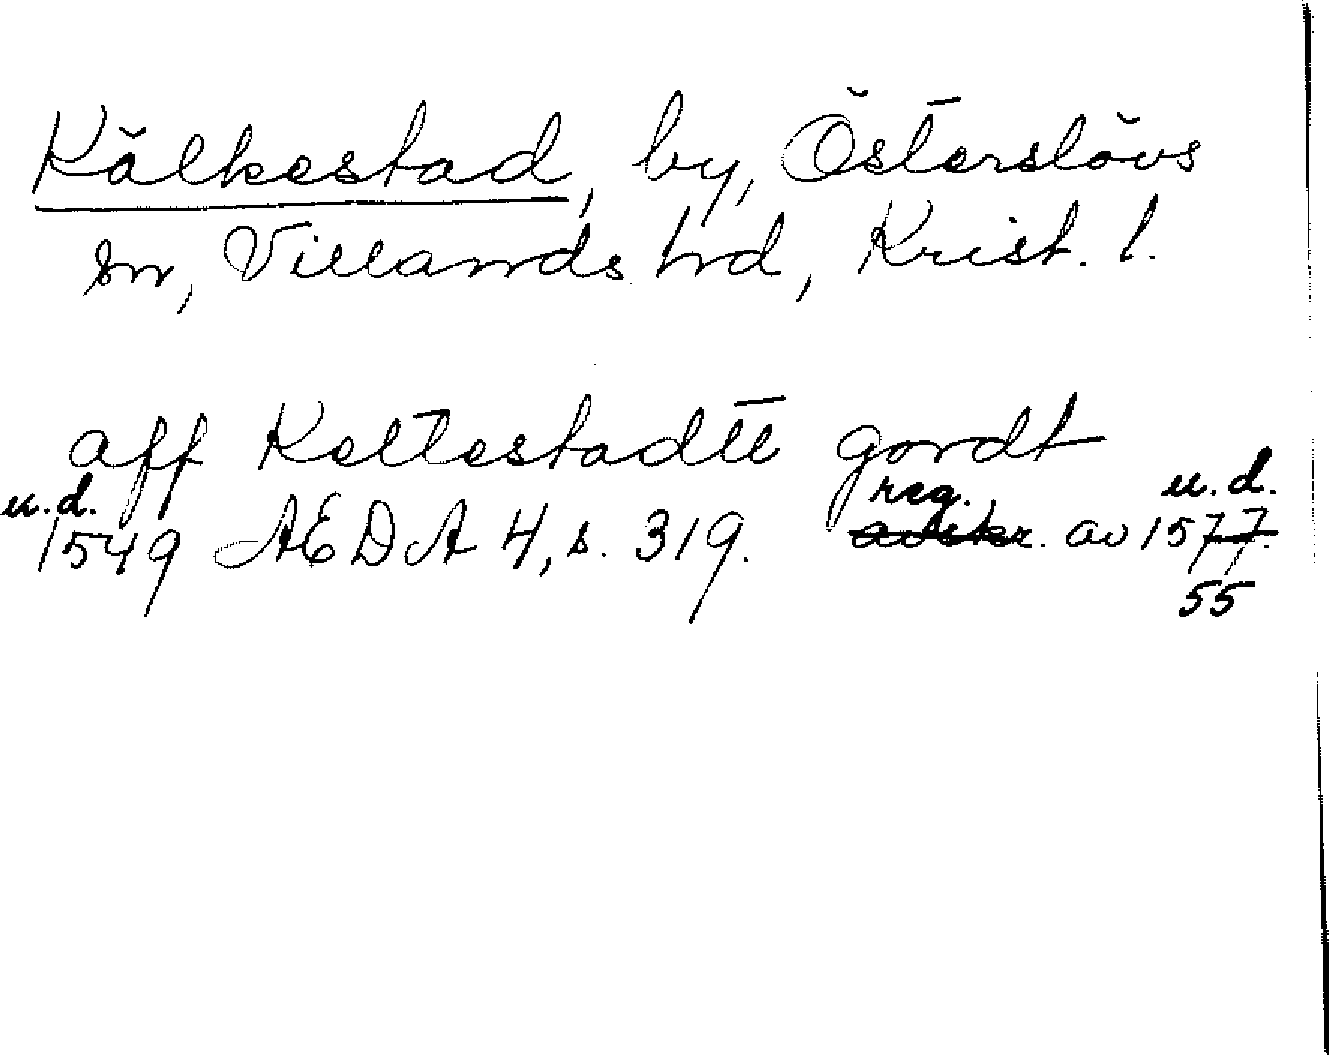 Kälkestad, by, Österslövs
sn, Villands hd, Krist. l.
aff Keltestadtt gordt
u.d. reg. u.d.
1549 AEDA 4, s. 319. avskr. av 1577.
55